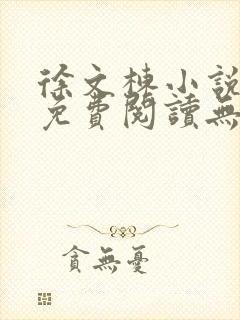 徐文棟小說
免費閱讀無
貪無憂